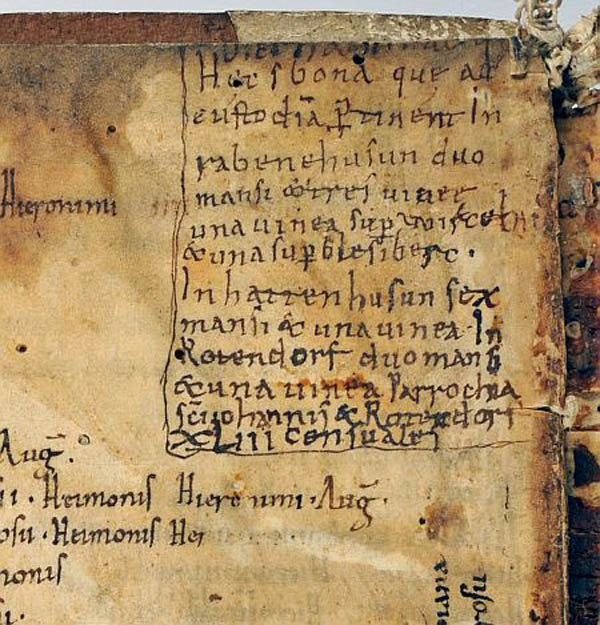 Hec s bona que ad
custodiā ꝑtinent In
rabenehusun duo
mansi & tres uinee
una uinea sup
& una sup blesiberc.
In hattenhusun sex
mansi & una uinea. In
Rotendorf duo mansi
& una uinea Parrochia
scī iohannis & Rotendorf
XLIII censuales
Hieronimi
Aug̅.
Heimonis Hieronimi. Aug̅.
Heimonis Hei